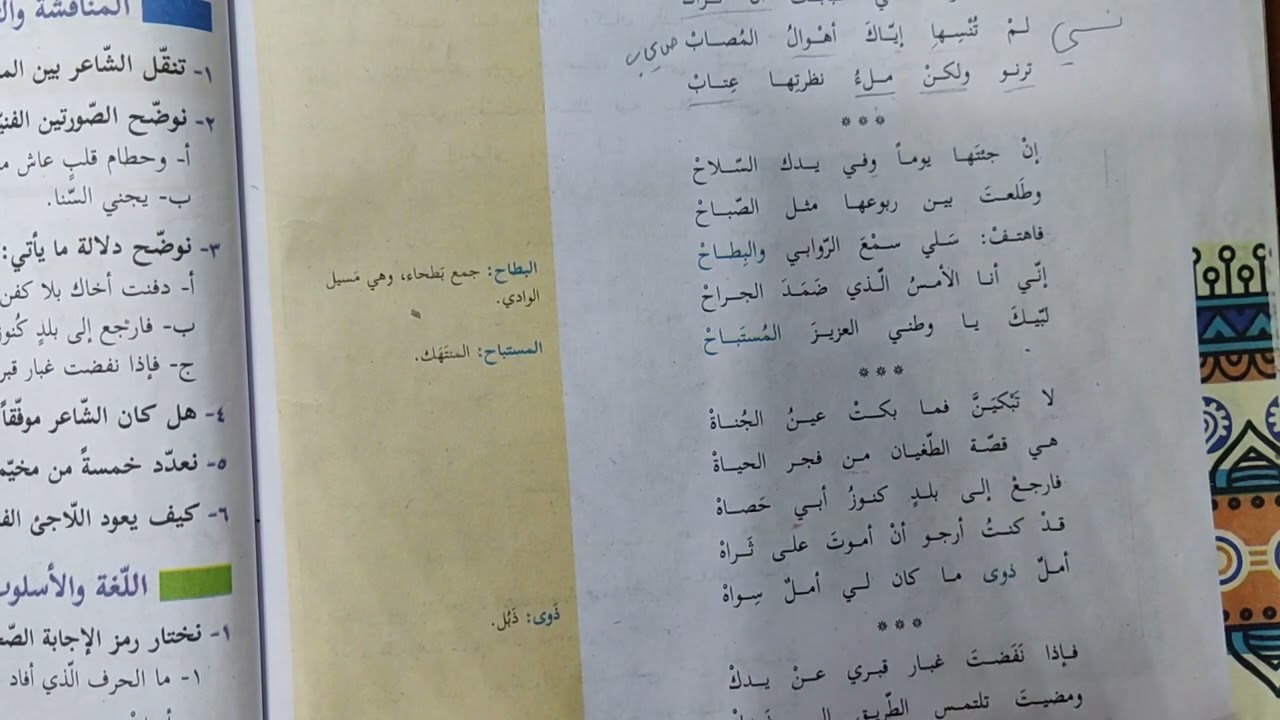 لمْ تُنْسِها إيّاكَ أهْوالُ المُصابْ
ترنو ولكنْ ملءُ نظرتِها عِتابْ
***
إنْ جئتَها يوماً وفي يدك السّلاحْ
وطَلعتَ بين ربوعها مثل الصّباحْ
فاهتفْ: سَلي سمْعَ الرّوابي والبِطاحْ
إنّي أنا الأمسُ الّذي ضَمَدَ الجراحْ
لبّيكَ يا وطني العزيزَ المُستَباحْ
***
لا تَبْكيَنَّ فما بكتْ عينُ الجُناةْ
هي قصّة الطّغيان من فجر الحياةْ
فارجعْ إلى بلدٍ كنوزُ أبي حَصاهْ
قدْ كنتُ أرجو أنْ أموتَ على ثَراهْ
أملٌ ذوى ما كان لي أملٌ سِواهْ
***
فإذا نَفَضتَ غبار قبري عنْ يدكْ
ومضيتَ تلتمس الطّريق
البطاح: جمع بَطحاء، وهي مَسيل
الوادي.
المستباح: المنتَهَك.
ذَوى: ذَبُل.
المناقشة
١- تنقّل الشّاعر بين
٢- نوضّح الصّورتين
أ- وحطام قلبٍ عاش
ب- يجني السّنا.
٣- نوضّح دلالة ما يأتي:
أ- دفنت أخاك بلا كفن
ب- فارجع إلى بلدٍ
ج- فإذا نفضت غبار
٤- هل كان الشّاعر موفّقاً
٥- نعدّد خمسةً من
٦- كيف يعود اللّاجئ
اللّغة والأسلوب
١- نختار رمز الإجابة
١- ما الحرف الّذي أفاد